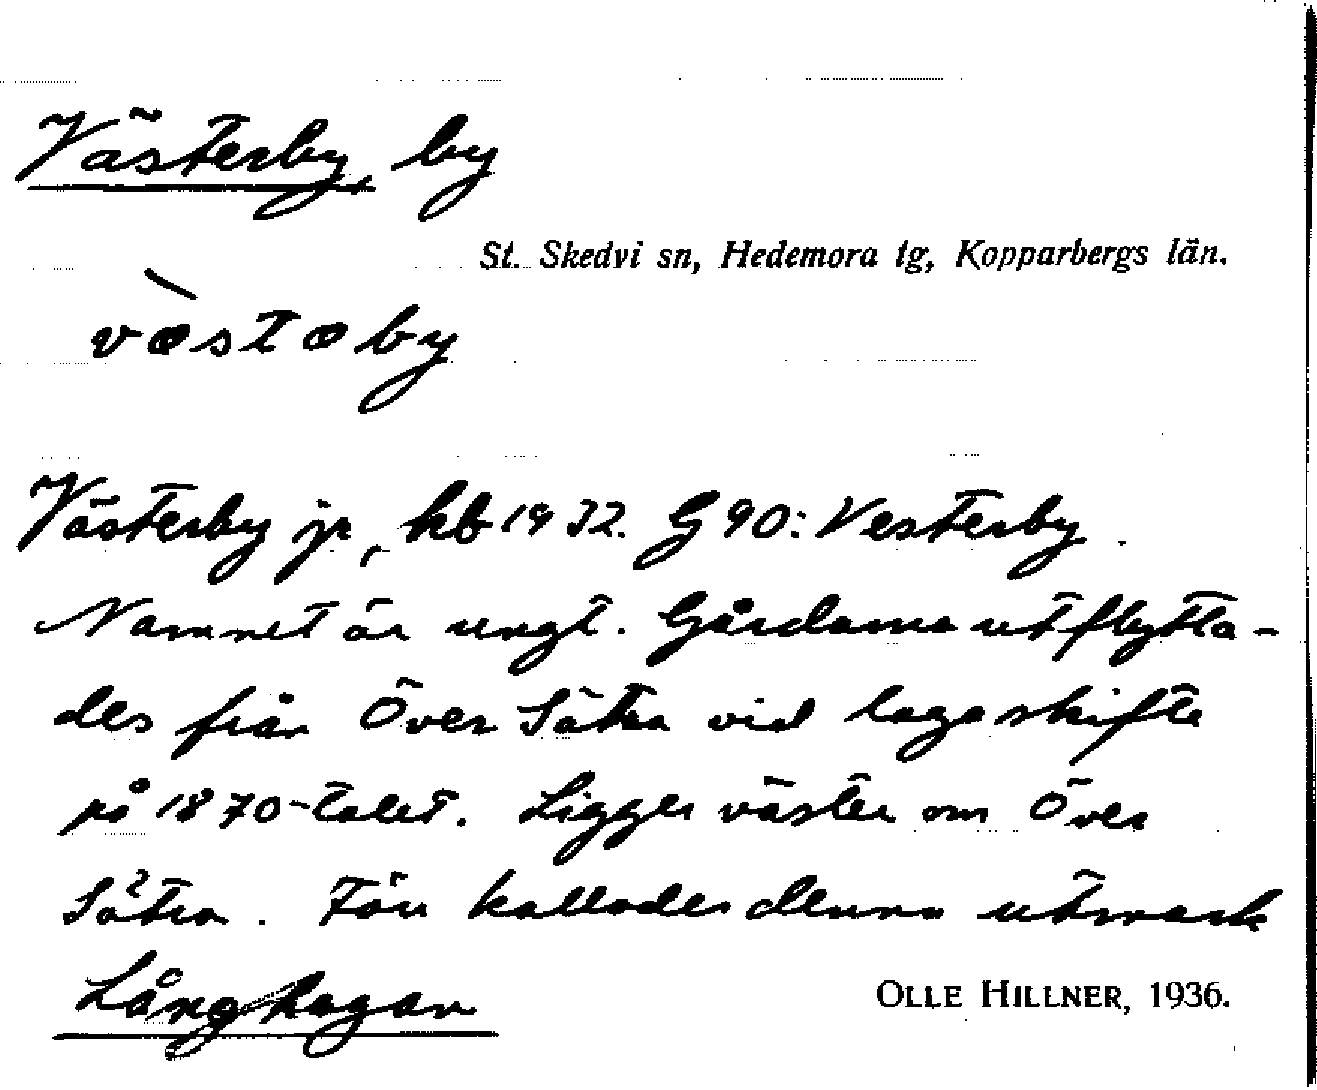 Västerby, by
St. Skedvi sn, Hedemora tg, Kopparbergs län.
væ̀stæby
Västerby jr, kb 1932. G 90: Vesterby.
Namnet är ungt. Gårdarna utflytta-
des från Över Sätra vid laga skifte
på 1870-talet. Ligger väster om Över
Sätra. Förr kallades denna utmark
Långhagan
OLLE HILLNER, 1936.